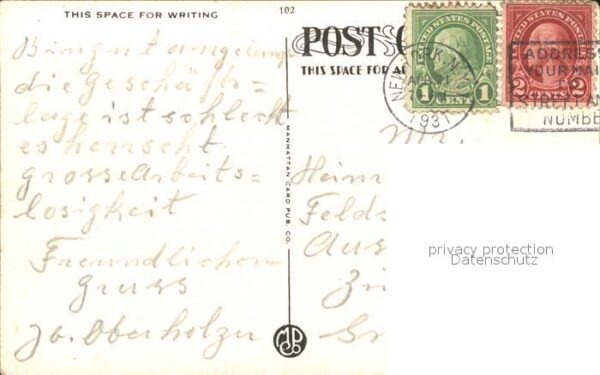 THIS SPACE FOR WRITING
102
Bin gut angelangt
die Geschäfts=
lage ist schlecht
es herrscht
grosse Arbeits=
losigkeit
Freundlichen
Gruss
Jb. Oberholzer
MANHATTAN CARD PUB. CO.
POST C
THIS SPACE FOR A
UNITED STATES POSTAGE
1 CENT 1
UNITED STATES POSTAGE
2 CENTS 2
NEW YORK, N.Y.
APR
1931
ADDRESS
YOUR MAI
STREET AN
NUMBE
Mr.
Hein
Felds
Aus
Zü
privacy protection
Datenschutz